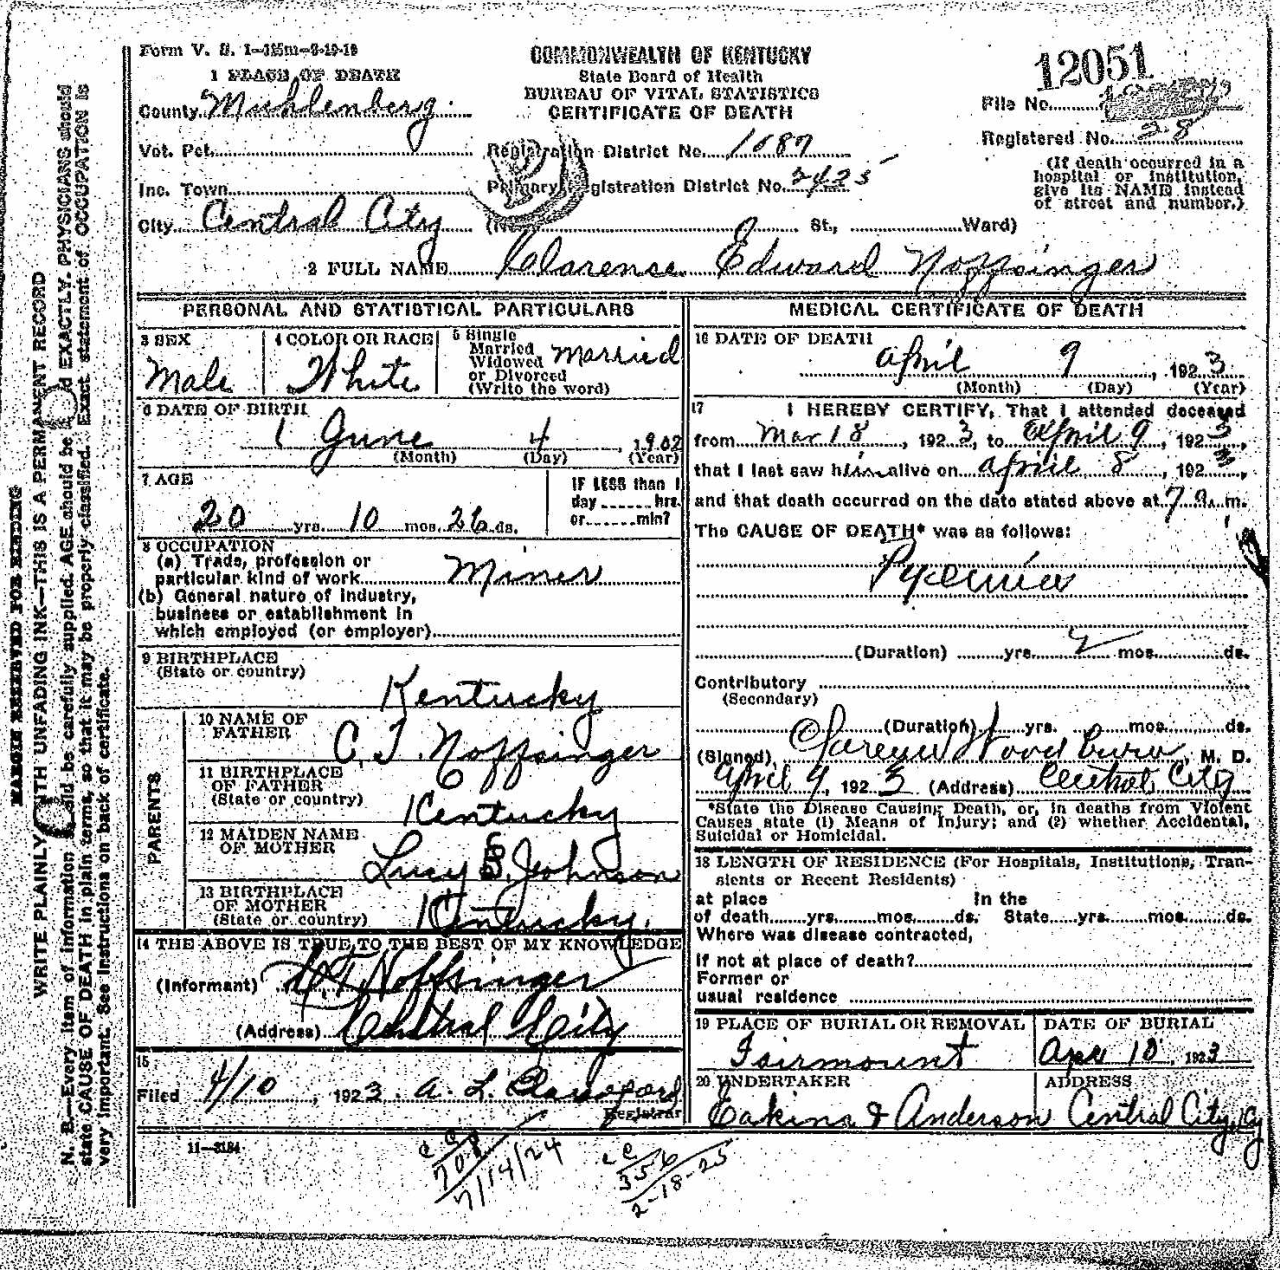 Form V. S. 1—
1 PLACE OF DEATH
County Muhlenberg
Vot. Pct.
Inc. Town
City Central City
COMMONWEALTH OF KENTUCKY
State Board of Health
BUREAU OF VITAL STATISTICS
CERTIFICATE OF DEATH
Registration District No. 1087
Primary Registration District No. 2435
(No. St., Ward)
12051
File No.
Registered No. 28
(If death occurred in a
hospital or institution,
give its NAME instead
of street and number.)
2 FULL NAME Clarence Edward Noffsinger
PERSONAL AND STATISTICAL PARTICULARS
3 SEX
Male
4 COLOR OR RACE
White
5 Single
Married
Widowed
or Divorced
(Write the word)
Married
6 DATE OF BIRTH
June 4, 1902
(Month) (Day) (Year)
7 AGE
20 yrs. 10 mos. 26 ds.
IF LESS than 1
day hrs.
or min?
8 OCCUPATION
(a) Trade, profession or
particular kind of work Miner
(b) General nature of industry,
business or establishment in
which employed (or employer)
9 BIRTHPLACE
(State or country)
Kentucky
PARENTS
10 NAME OF
FATHER
C. T Noffsinger
11 BIRTHPLACE
OF FATHER
(State or country)
Kentucky
12 MAIDEN NAME
OF MOTHER
Lucy Johnson
13 BIRTHPLACE
OF MOTHER
(State or country)
Kentucky.
14 THE ABOVE IS TRUE TO THE BEST OF MY KNOWLEDGE
(Informant) Noffsinger
(Address) Central City
15
Filed 4/10, 1923 A. L.
Registrar
11—3184
MEDICAL CERTIFICATE OF DEATH
16 DATE OF DEATH
April 9, 1923
(Month) (Day) (Year)
17 I HEREBY CERTIFY, That I attended deceased
from Mar 18, 1923, to April 9, 1923,
that I last saw him alive on April 8, 1923,
and that death occurred on the date stated above at 7 a. m.
The CAUSE OF DEATH* was as follows:
Pyaemia
(Duration) yrs. 2 mos. ds.
Contributory
(Secondary)
(Duration) yrs. mos. ds.
(Signed) Woodburn, M. D.
April 9, 1923 (Address) Central City
*State the Disease Causing Death, or, in deaths from Violent
Causes state (1) Means of Injury; and (2) whether Accidental,
Suicidal or Homicidal.
18 LENGTH OF RESIDENCE (For Hospitals, Institutions, Tran-
sients or Recent Residents)
at place In the
of death yrs. mos. ds. State yrs. mos. ds.
Where was disease contracted,
If not at place of death?
Former or
usual residence
19 PLACE OF BURIAL OR REMOVAL
Fairmount
DATE OF BURIAL
Apr 10, 1923
20 UNDERTAKER
Eakins & Anderson
ADDRESS
Central City, Ky
cc
708
7/14/24
cc
356
2-18-25
MARGIN RESERVED FOR BINDING
WRITE PLAINLY WITH UNFADING INK—THIS IS A PERMANENT RECORD
N. B.—Every item of information should be carefully supplied. AGE should be stated EXACTLY. PHYSICIANS should
state CAUSE OF DEATH in plain terms, so that it may be properly classified. Exact statement of OCCUPATION is
very important. See instructions on back of certificate.